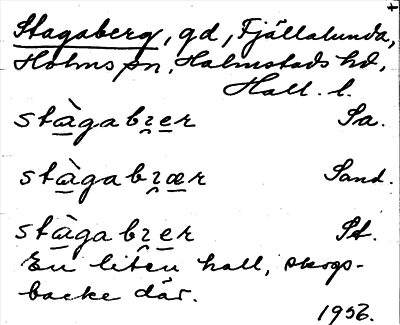 Stagaberg, gd, Fjällalunda,
Holms sn, Halmstads hd,
Hall. l.
stàgabɀer Sa.
stàgabɀær Sand.
stàgabɀer St.
En liten hall, skogs-
backe där.
1956.